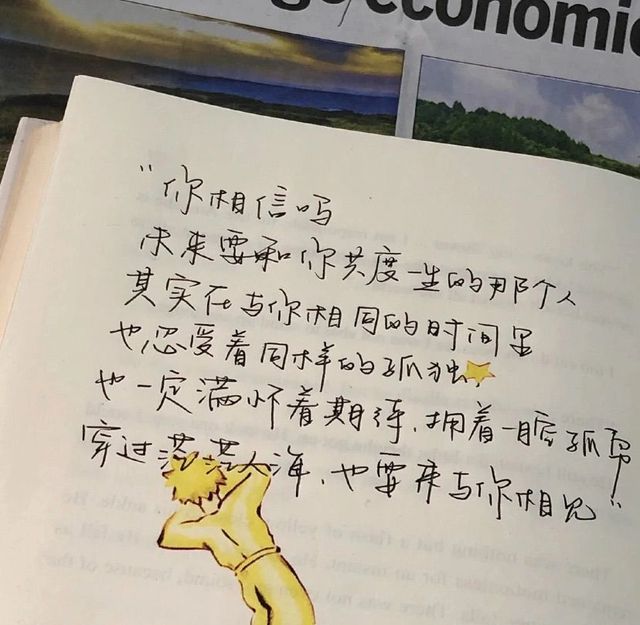 economic
“你相信吗
未来要和你共度一生的那个人
其实在与你相同的时间里
也忍受着同样的孤独
也一定满怀着期待，拥着一腔孤勇
穿过茫茫人海，也要来与你相见”